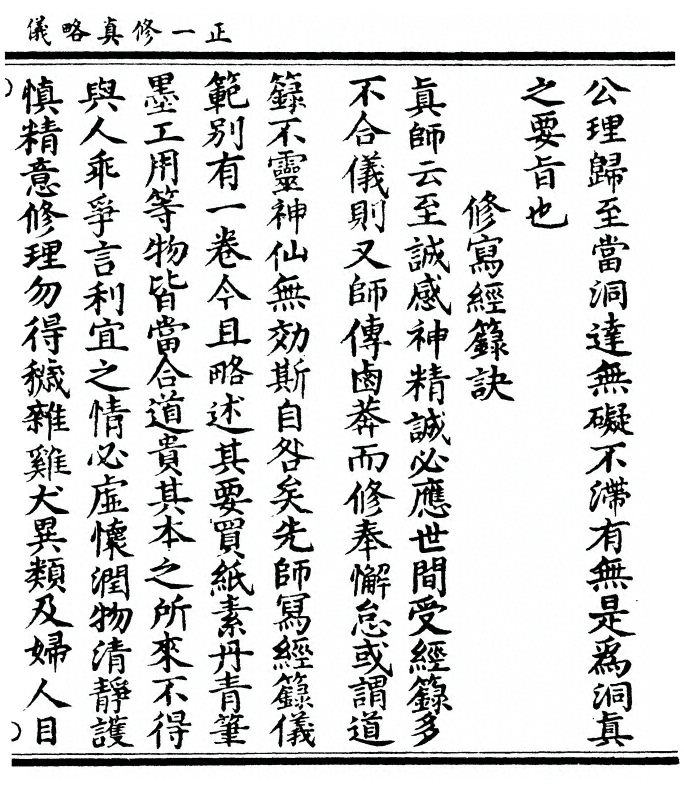 正一修真略儀
公理歸至當洞達無礙不滯有無是爲洞真
之要旨也
修寫經籙訣
真師云至誠感神精誠必應世間受經籙多
不合儀則又師傳鹵莽而修奉懈怠或謂道
籙不靈神仙無効斯自咎矣先師寫經籙儀
範別有一卷今且略述其要買紙素丹青筆
墨工用等物皆當合道貴其本之所來不得
與人乖爭言利宜之情必虛懷潤物清靜護
慎精意修理勿得穢雜雞犬異類及婦人目